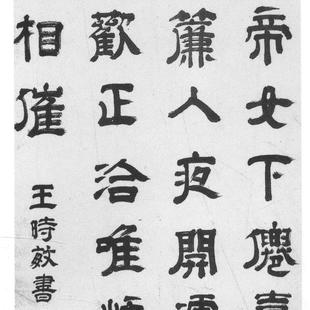 帝女下僊
簾人夜開
歡正洽唯
相催
王時敏書